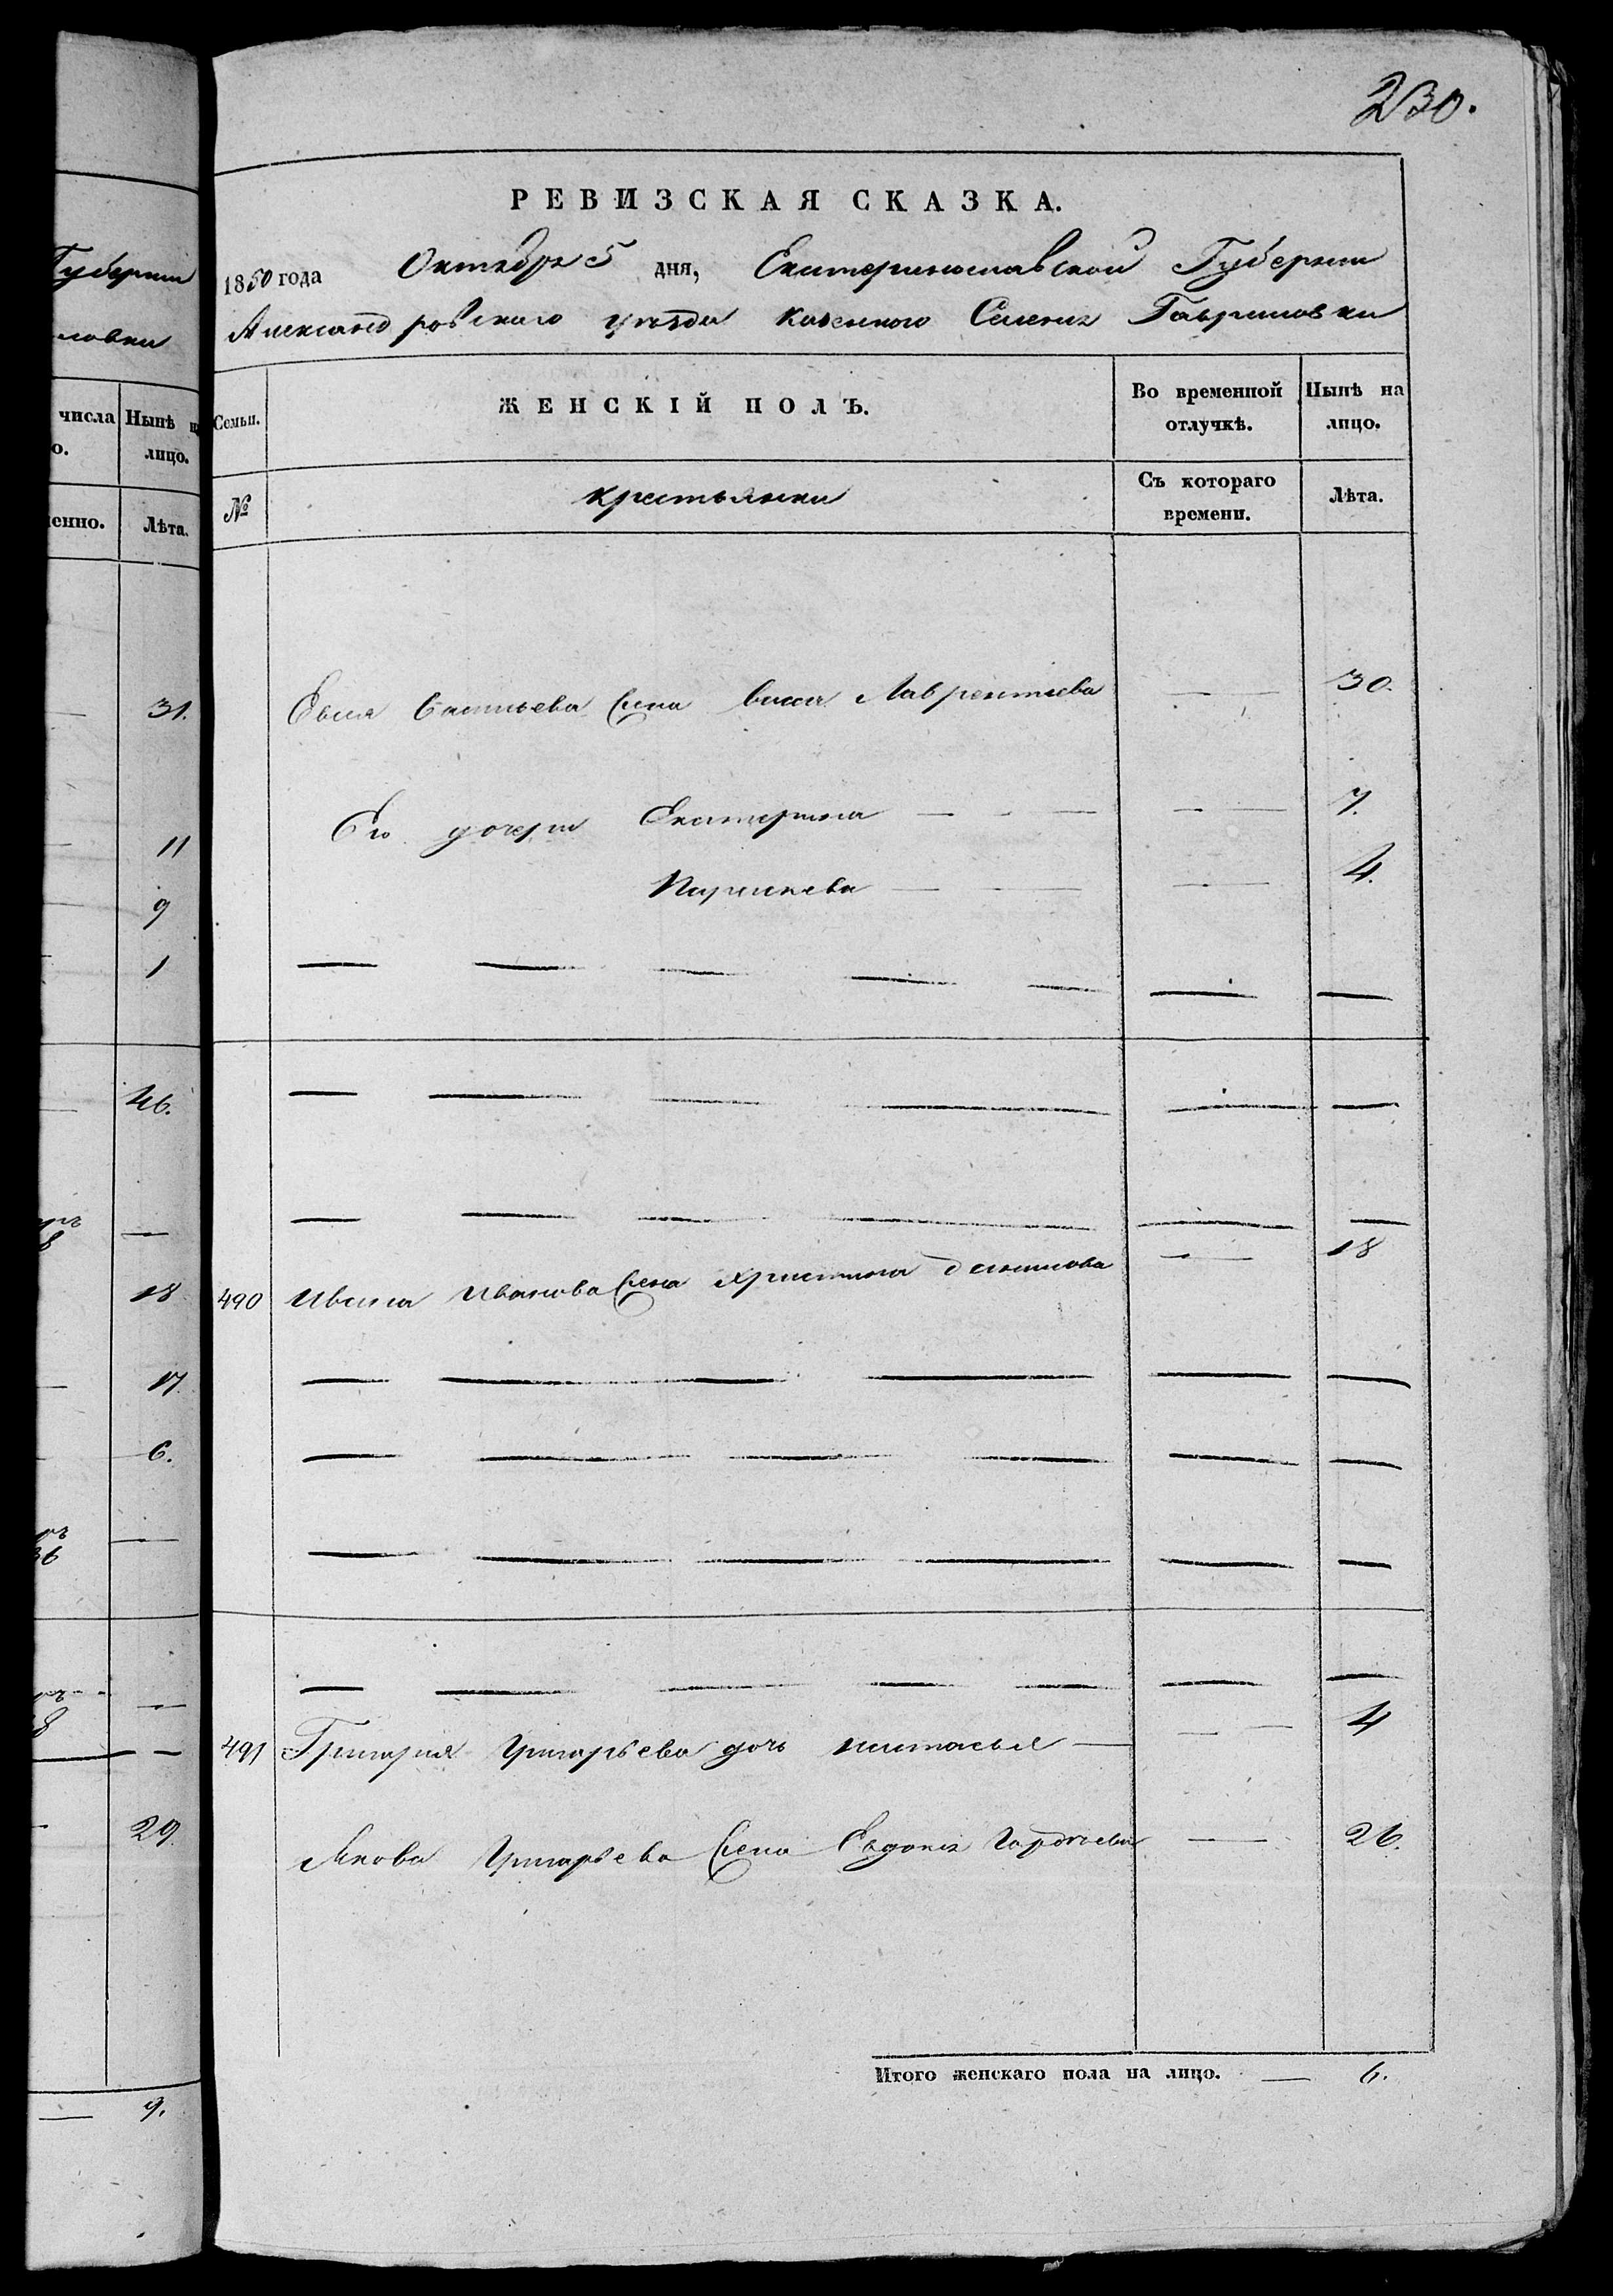 Губерніи
ловки
числа
Нынѣ н
о.
лицо.
енно.
Лѣта.
31.
11
9
1
46.
8
18
17
6.
36
8
29.
9.
230.
РЕВИЗСКАЯ СКАЗКА.
1850 года Октября 5 дня, Екатеринославской Губерніи
Александровскаго уѣзда казенного Селенія Гавриловки
Семьи.
ЖЕНСКІЙ ПОЛЪ.
Во временной отлучкѣ.
Нынѣ на лицо.
№
крестьянки
Съ котораго времени.
Лѣта.
Васильева жена Лаврентіева — 30.
Его дочери Екатерина — — 7.
Параскева — — 4.
490 Ивана Иванова жена Христина Данилова — 18
491 Григорія Григорьева дочь Настасья — — 4
Якова Григорьева жена Евдокія Гордѣева — 26.
Итого женскаго пола на лицо. — 6.